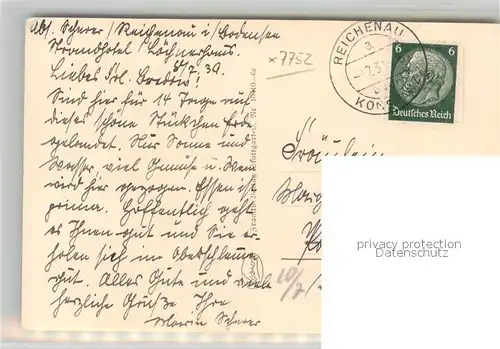 Abs. Scherer / Reichenau i/Bodensee
Strandhotel Löchnerhaus.
5/7.39.
Liebes Frl.
Sind hier für 14 Tage auf
dieses schöne Stückchen Erde
gelandet. Nur Sonne und
Wasser, viel Gemüse u. Wein
wird hier gezogen. Essen ist
prima. Hoffentlich geht
es Ihnen gut und Sie er-
holen sich im
gut. Alles Gute und viele
herzliche Grüße Ihre
Maria Scherer
x7752
REICHENAU
6 6
Deutsches Reich
Fräulein
privacy protection
Datenschutz
10/7